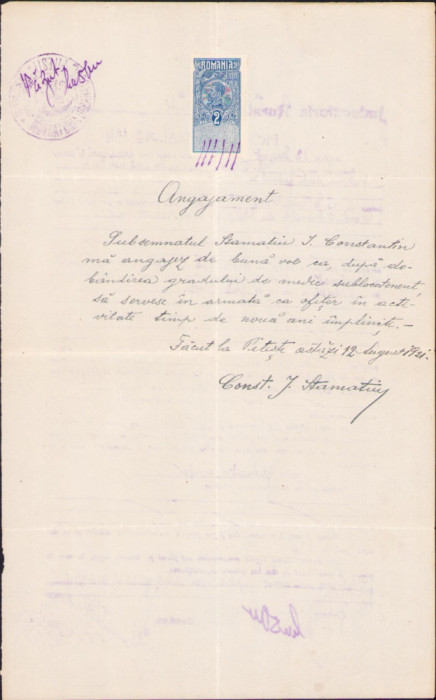 Văzut
ROMANIA
2
Angajament
Subsemnatul Stamatiu I. Constantin
mă angajez de bună voe ca, după do-
bândirea gradului de medic sublocotenent,
să servesc în armată ca ofițer în acti-
vitate timp de nouă ani împliniți.—
Făcut la Pitești astăzi 12 August 1921.
Const. I. Stamatiu